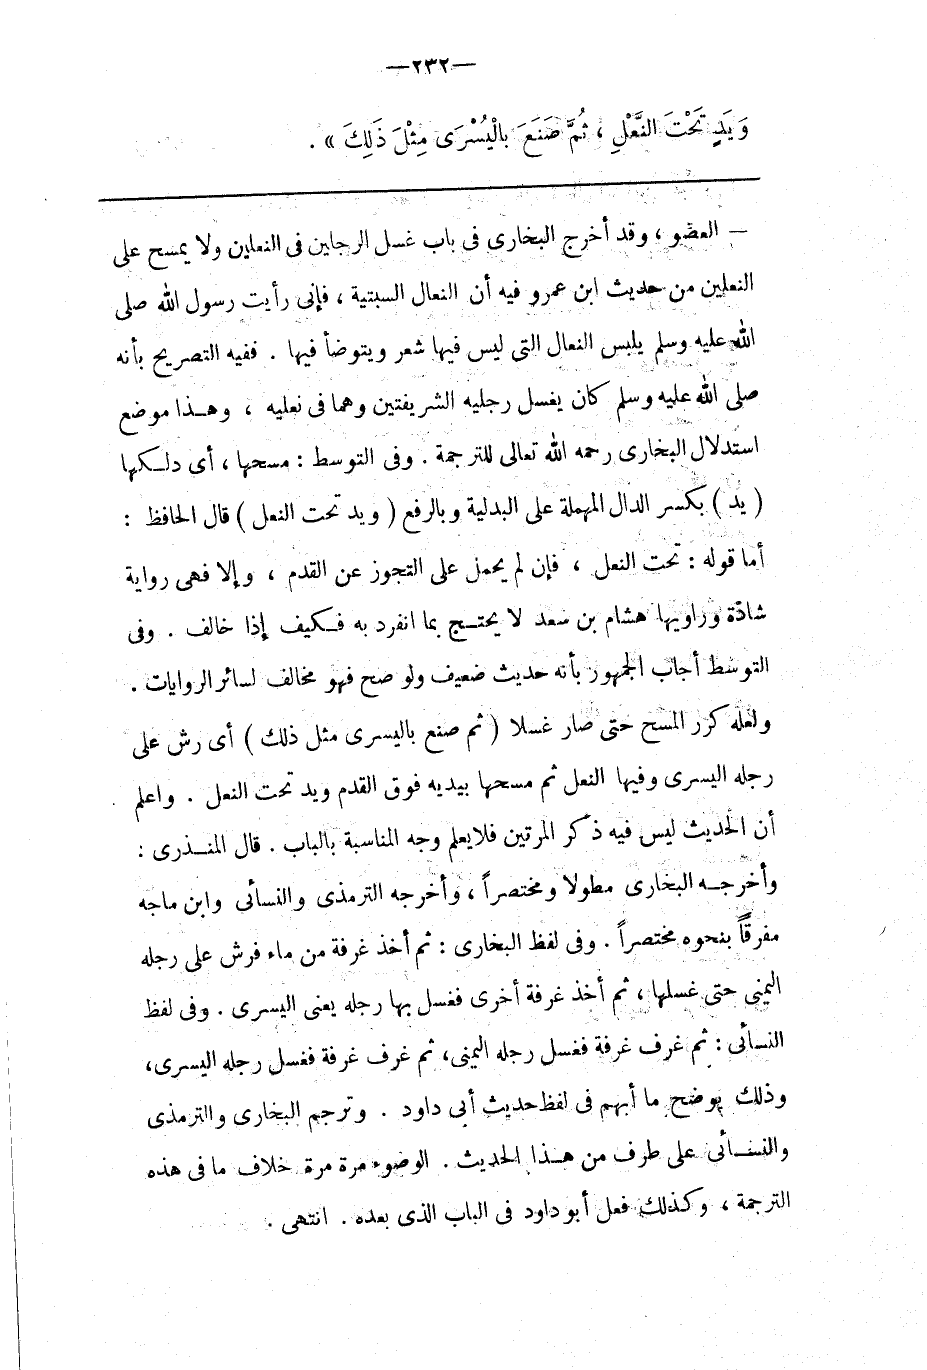 —٢٣٢—
وَيَدٍ تَحْتَ النَّعْلِ ، ثُمَّ صَنَعَ بِالْيُسْرَى مِثْلَ ذَلِكَ » .
— العضو ، وقد أخرج البخارى فى باب غسل الرجلين فى النعلين ولا يمسح على
النعلين من حديث ابن عمرو فيه أن النعال السبتية ، فإنى رأيت رسول الله صلى
الله عليه وسلم يلبس النعال التى ليس فيها شعر ويتوضأ فيها . ففيه التصريح بأنه
صلى الله عليه وسلم كان يغسل رجليه الشريفتين وهما فى نعليه ، وهـذا موضع
استدلال البخارى رحمه الله تعالى للترجمة . وفى التوسط : مسحها ، أى دلـكها
( يد ) بكسر الدال المهملة على البدلية وبالرفع ( ويد تحت النعل ) قال الحافظ :
أما قوله : تحت النعل ، فإن لم يحمل على التجوز عن القدم ، وإلا فهى رواية
شاذة وراويها هشام بن سعد لا يحتـج بما انفرد به فـكيف إذا خالف . وفى
التوسط أجاب الجمهور بأنه حديث ضعيف ولو صح فهو مخالف لسائر الروايات .
ولعله كرر المسح حتى صار غسلا ( ثم صنع باليسرى مثل ذلك ) أى رش على
رجله اليسرى وفيها النعل ثم مسحها بيديه فوق القدم ويد تحت النعل . واعلم
أن الحديث ليس فيه ذكر المرتين فلايعلم وجه المناسبة بالباب . قال المنـذرى :
وأخرجـه البخارى مطولا ومختصراً ، وأخرجه الترمذى والنسائى وابن ماجه
مفرقاً بنحوه مختصراً . وفى لفظ البخارى : ثم أخذ غرفة من ماء فرش على رجله
اليمنى حتى غسلها ، ثم أخذ غرفة أخرى فغسل بها رجله يعنى اليسرى . وفى لفظ
النسائى : ثم غرف غرفة فغسل رجله اليمنى، ثم غرف غرفة فغسل رجله اليسرى،
وذلك يوضح ما أبهم فى لفظ حديث أبى داود . وترجم البخارى والترمذى
والنسـائى على طرف من هـذا الحديث . الوضوء مرة مرة خلاف ما فى هذه
الترجمة ، وكذلك فعل أبو داود فى الباب الذى بعده . انتهى .